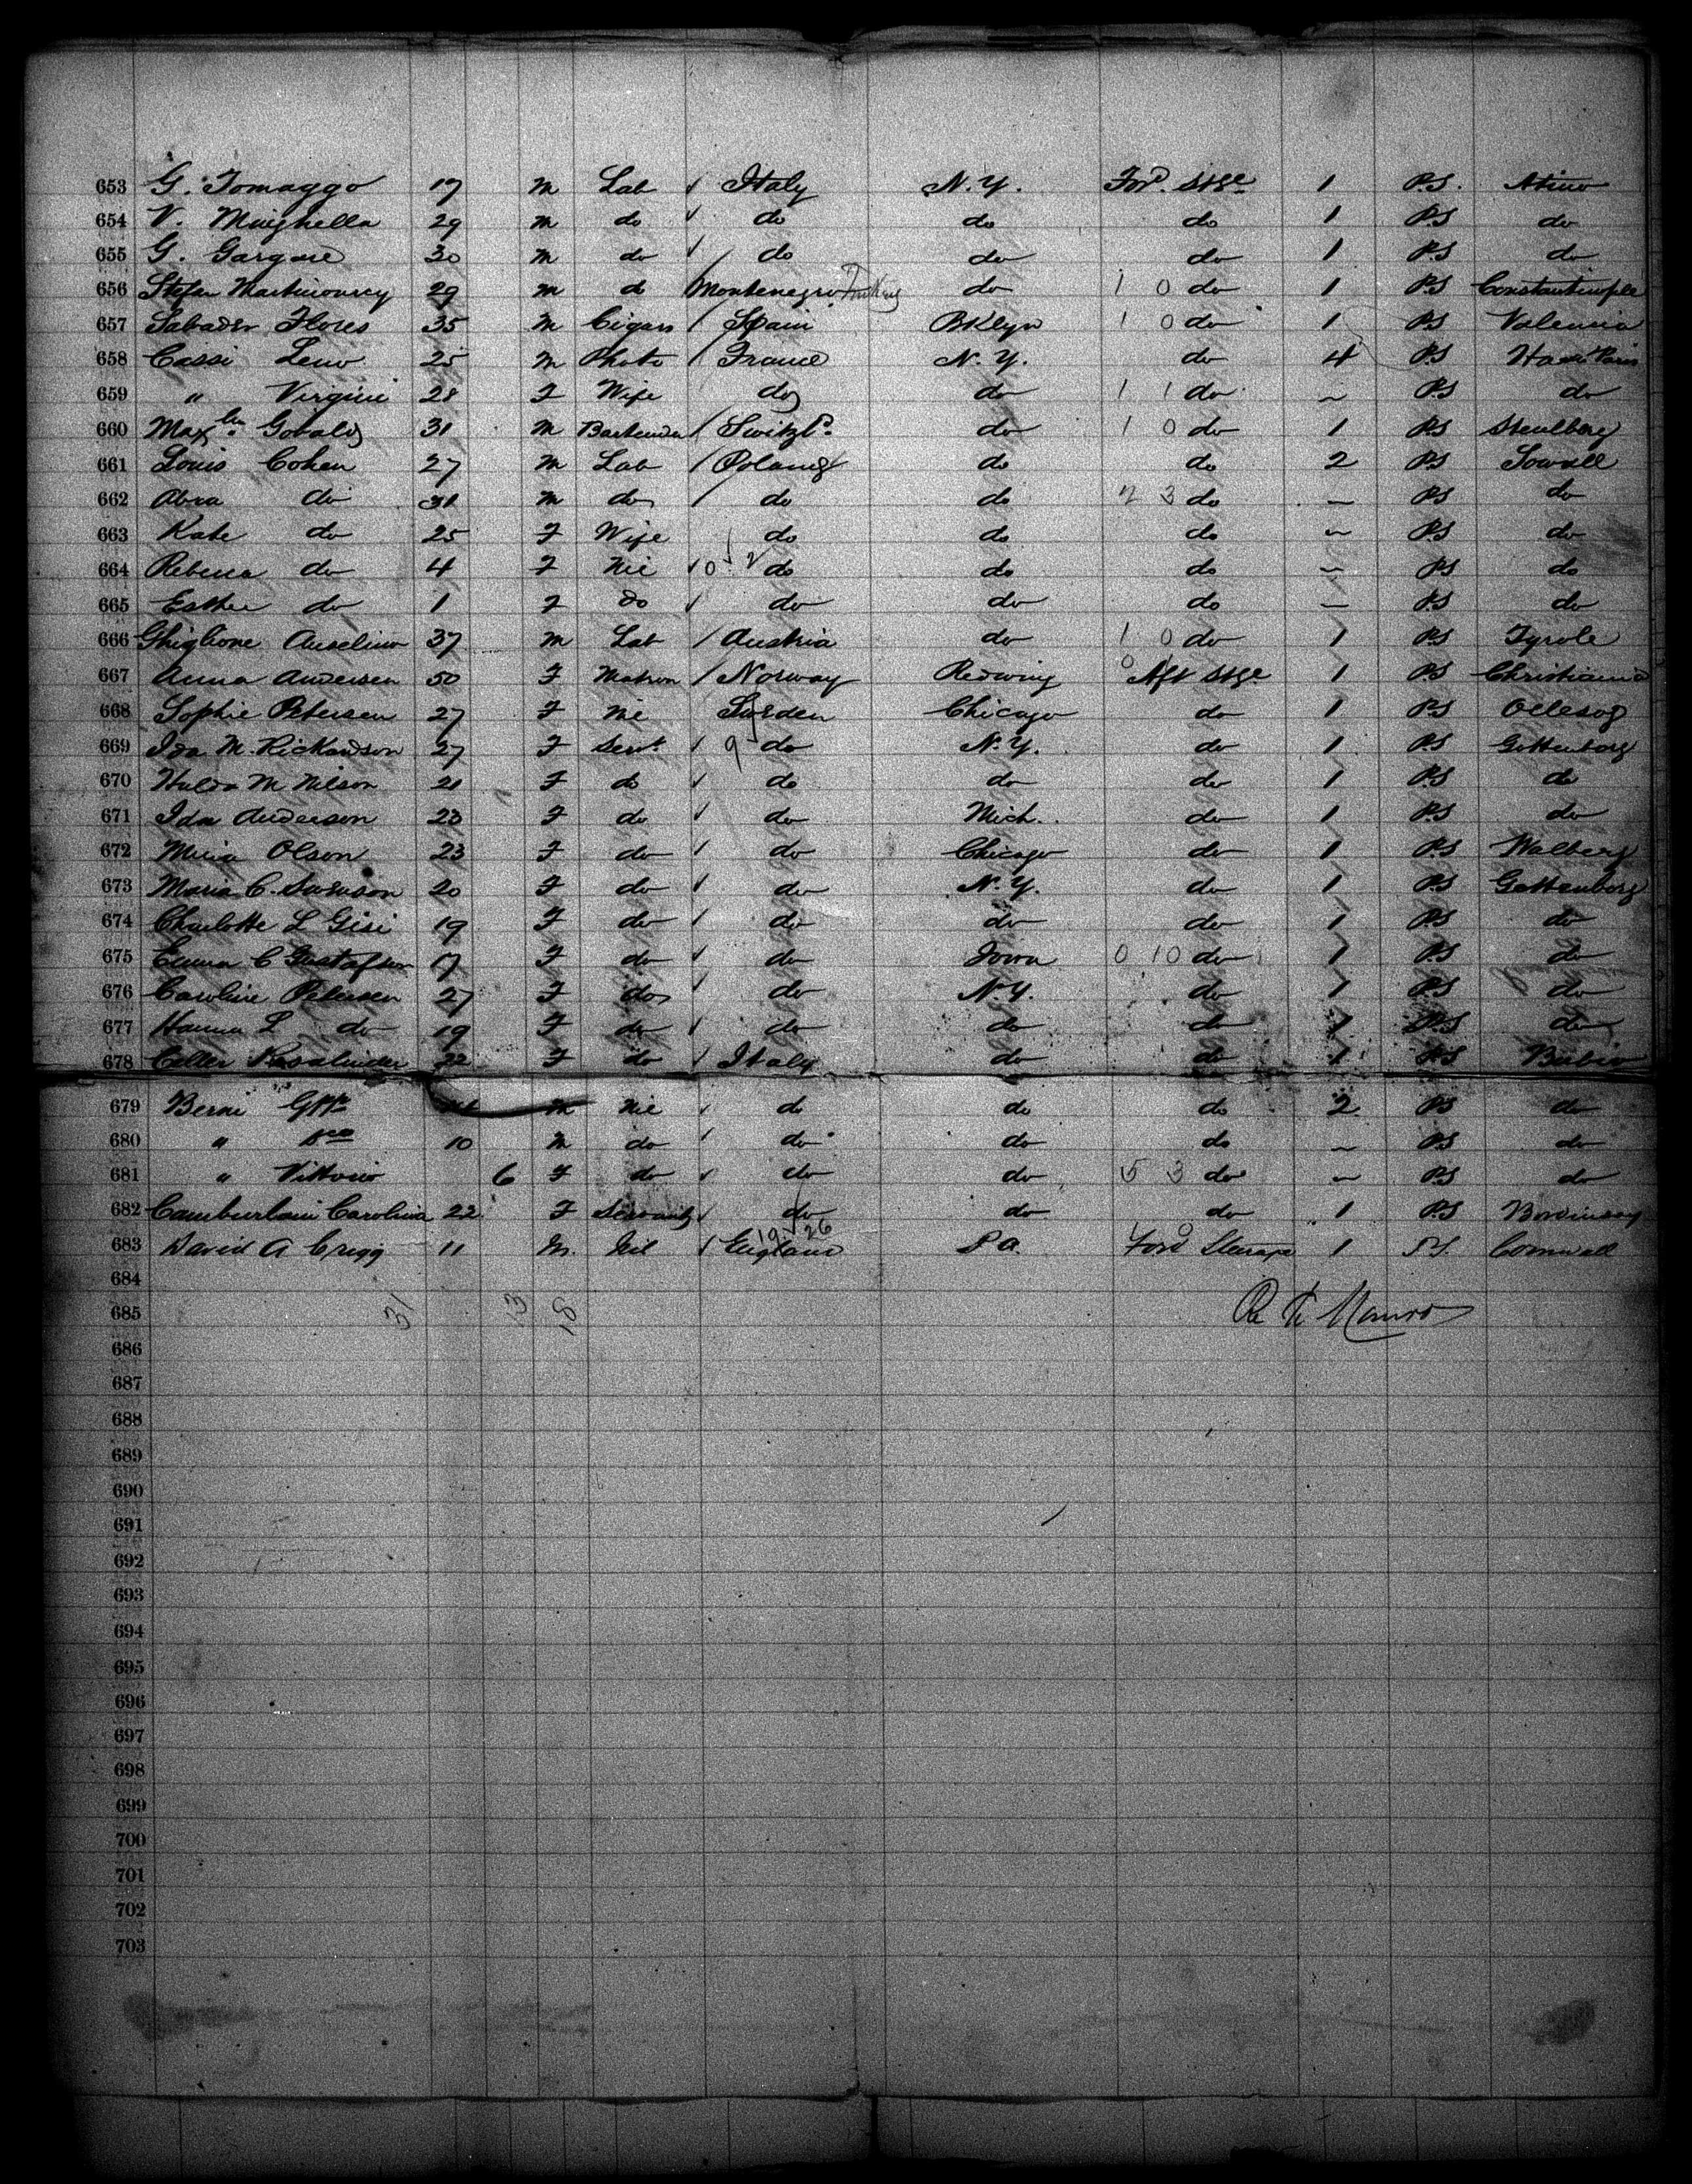 653 G. Tomaggo 19 M Lab Italy N.Y. For'd Stge 1 P.S. Atino
654 V. Muighella 29 M do do do do 1 P.S do
655 G. Gargone 30 M do do do do 1 P.S do
656 Stefan 29 M do Montenegro Turkey do 1 0 do 1 P.S Constantinople
657 Sabader Flores 35 M Cigars Spain BKlyn 1 0 do 1 P.S Valencia
658 Cassi Leno 25 M Photo France N.Y. do 4 P.S Paris
659 " Virginie 28 F Wife do do 1 1 do ~ P.S do
660 Max Gobaly 31 M Bartender Switzld do 1 0 do 1 P.S
661 Louis Cohen 27 M Lab Poland do do 2 P.S
662 Abra do 31 M do do do 2 3 do — P.S do
663 Kate do 25 F Wife do do do ~ P.S do
664 Rebecca do 4 F Nil 0 2 do do do ~ P.S do
665 Esther do 1 F do do do do — P.S do
666 Ghiglione Anselino 37 M Lab Austria do 1 0 do 1 P.S Tyrole
667 Anna Andersen 50 F Matron Norway Redwing 0 Aft Stge 1 P.S Christiania
668 Sophie Petersen 27 F Nil Sweden Chicago do 1 P.S
669 Ida M. Rickardson 27 F Servt 9 do N.Y. do 1 P.S Gottenborg
670 Hulda M Nilson 21 F do do do do 1 P.S do
671 Ida Anderson 23 F do do Mich. do 1 P.S do
672 Olson 23 F do do Chicago do 1 P.S Walberg
673 Maria C. Swenson 20 F do do N.Y. do 1 P.S Gottenborg
674 Charlotte L Gisi 19 F do do do do 1 P.S do
675 Emma C Gustafson 17 F do do Iowa 0 10 do 1 P.S do
676 Caroline Petersen 27 F do do N.Y. do 1 P.S do
677 Hanna L do 19 F do do do do 1 P.S do
678 Celler Rosalinda 22 F do Italy do do 1 P.S Bubio
679 Berni M Nil do do do 2 P.S do
680 " 10 M do do do do ~ P.S do
681 " Vittorio 6 F do do do 5 3 do ~ P.S do
682 Camburlain Carolina 22 F Servant do do do 1 P.S
683 David A Crigg 11 M. Nil 19 26 England P a. Ford Steerage 1 P.S. Cornwall
684
685 31 13 18 Munro
686
687
688
689
690
691
692
693
694
695
696
697
698
699
700
701
702
703